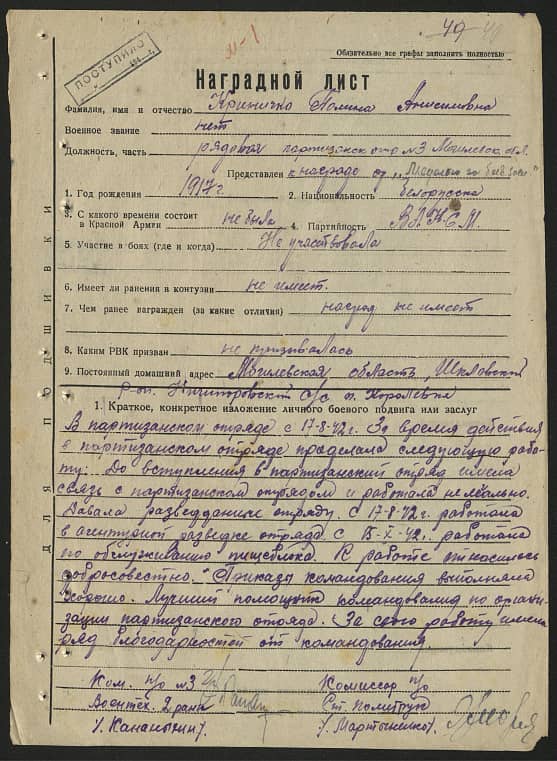 49
м-1
ПОСТУПИЛО
Обязательно все графы заполнить полностью
Наградной лист
Фамилия, имя и отчество Криничко Полина Анисимовна
Военное звание нет
Должность, часть рядовая партизанск отр №3 Могилевск обл.
Представлен к награде "Медалью за боев.
1. Год рождения 1917 г. 2. Национальность белорусска
3. С какого времени состоит в Красной Армии не была 4. Партийность ВЛКСМ
5. Участие в боях (где и когда) Не участвовала
6. Имеет ли ранения и контузии не имеет.
7. Чем ранее награжден (за какие отличия) наград не имеет
8. Каким РВК призван не призывалась
9. Постоянный домашний адрес Могилевская область, Шкловский
р-он. с/с
ДЛЯ ПОДШИВКИ
1. Краткое, конкретное изложение личного боевого подвига или заслуг
В партизанском отряде с 17-8-42г. За время действия
в партизанском отряде проделала следующую рабо-
ту: До вступления в партизанский отряд имела
связь с партизанском отрядом и работала нелегально.
Давала разведданные отряду. С 17-8-42г. работала
в агентурной разведке отряда. С 15-X-42г. работала
по обслуживанию пищеблока. К работе относилась
добросовестно. Приказы командования выполняла
хорошо. Лучший помощник командования по органи-
зации партизанского отряда. За свою работу имела
ряд благодарностей от командования.
Ком. п/о №3 Комиссар п/о
Воентех. 2 ранга Ст. Политрук
/Мартыненко/